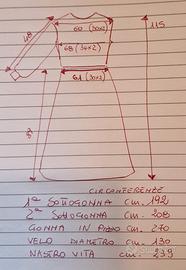 60 (30x2)
115
48
68 (34x2)
61 (30x2)
CIRCONFERENZE
1ª SOTTOGONNA CM. 192
2ª SOTTOGONNA CM. 208
GONNA IN PIZZO CM. 270
VELO DIAMETRO CM. 130
NASTRO VITA CM. 239